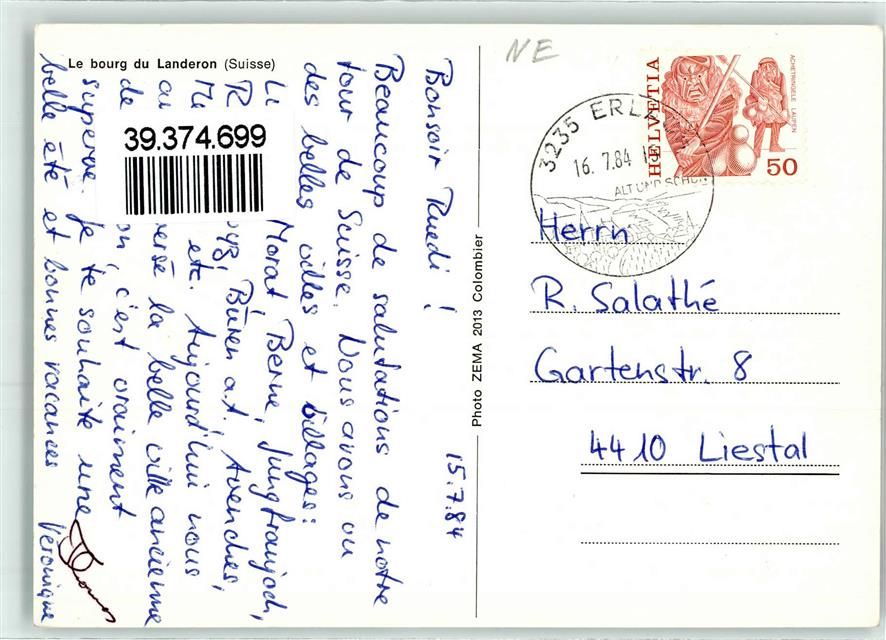 Le bourg du Landeron (Suisse)
NE
HELVETIA
ACHETRINGELE LAUPEN
50
3235 ERL
16. 7.84
ALT UND SCHÖN
39.374.699
15.7.84
Bonsoir Ruedi !
Beaucoup de salutations de notre
tour de Suisse. Nous avons vu
des belles villes et villages:
Morat, Berne, Jungfraujoch,
Büren a.A, Avenches,
etc. Aujourd'hui nous
la belle ville ancienne
de c'est vraiment
superbe. Je te souhaite une
belle été et bonnes vacances
Véronique
Thomas
Photo ZEMA 2013 Colombier
Herrn
R. Salathé
Gartenstr. 8
4410 Liestal